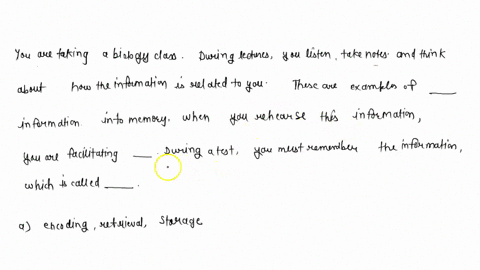 You are taking a biology class. During lectures, you listen, take notes and think
about how the information is related to you. These are examples of ___
information into memory. when you rehearse this information,
you are facilitating ___. During a test, you must remember the information,
which is called ____.
a) encoding, retrieval, storage